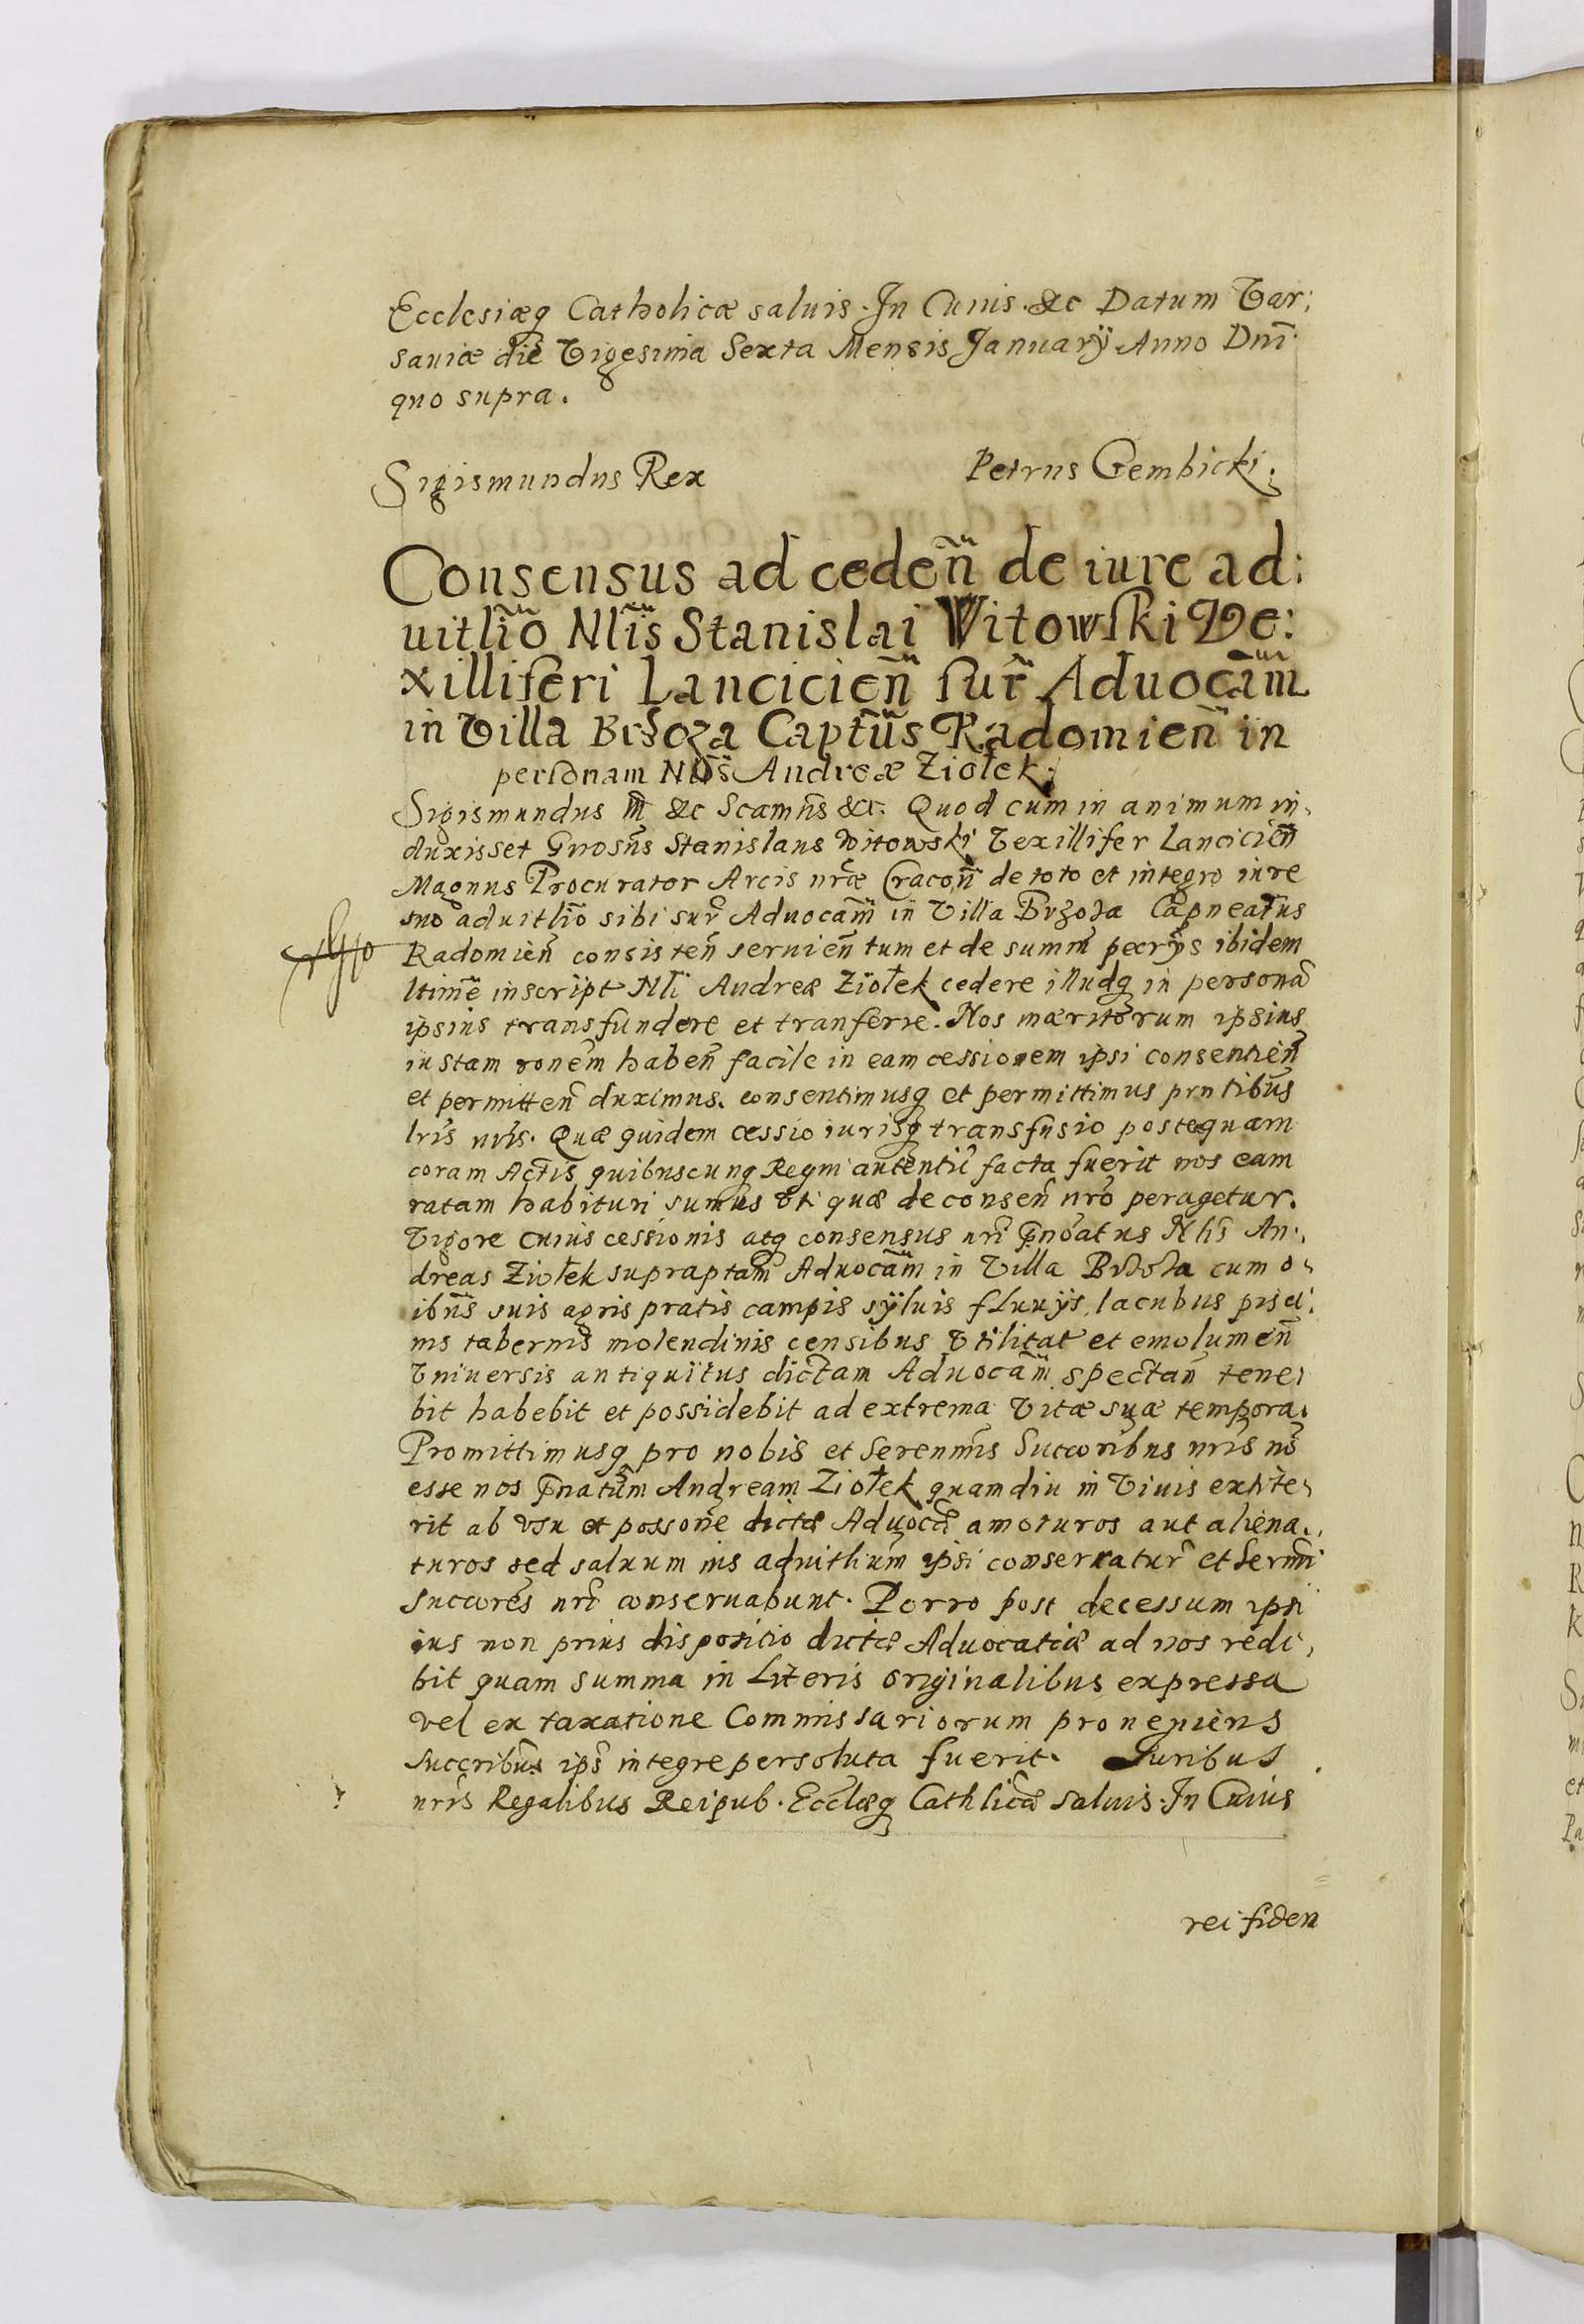 Ecclesiæq Catholicæ saluis. In Cuius. &c Datum Var:
sauiæ die Vigesima Sexta Mensis Januarÿ Anno Dnĩ
quo supra.
Sigismundus Rex
Petrus Gembicki.
Consensus ad cedeñ de iure ad:
uitlĩo Nlĩs Stanislai Witowski Ve:
xilliferi Lancicieñ sup̃ Aduocam̃
in Villa Brzoza Capt̃us Radomieñ in
personam Nlĩs Andreæ Ziołek.
Sigismundus III &c Scamñs &c. Quod cum in animum in,
duxisset Gnosũs Stanislaus Witowski Vexillifer Lancicieñ
Magnus Procurator Arcis nrǣ Cracoñ de toto et integro iure
suo aduitlĩo sibi sup̃ Aduocam̃ in Villa Brzoza Capneatus
Radomieñ consisteñ seruieñ tum et de summ̃ pecr̃ÿs ibidem
ltime inscript Nlĩ Andreæ Ziołek cedere illudq in personã
ipsius transfundere et tranferre. Nos mæritorum ipsius
iustam roñem habeñ facile in eam cessionem ipsi consentieñ
et permitteñ duximus. consentimusq et permittimus prñtibus
lrĩs nrĩs. Quæ quidem cessio iurisq transfusio postequam
coram Actis quibuscunq Regni autentic̃ facta fuerit nos eam
ratam habituri sumus Vti quæ de conseñ nrõ peragetur.
Vigore cuius cessionis atq consensus nrĩ p̃noatus Nlĩs An,
dreas Ziołek supraptam̃ Aduocam̃ in Villa Brzoza cum o,
ibus̃ suis agris pratis campis sÿluis fluuÿs, lacubus pisci,
nis tabernis molendinis censibus Vtilitat̃ et emolumeñ
Vniuersis antiquitus dictam Aduocam̃ spectañ tene,
bit habebit et possidebit ad extrema Vitæ suæ tempora.
Promittimusq pro nobis et Serenmĩs Succorĩbus nrĩs nõ
esse nos p̃natum̃ Andream Ziołek quamdiu in Viuis extite,
rit ab vsu et possorĩe dictæ Aduocæ̃ amoturos aut aliena.,
turos sed saluum ius aduitlium̃ ipsi conseruatur̃ et Sermĩ
succores̃ nrĩ conseruabunt. Porro post decessum ipsi
ius non prius dispositio dictæ Aduocatiæ ad nos redi,
bit quam summa in Literis originalibus expressa
vel ex taxatione Commissariorum proueniens
succribus̃ ips̃ integre persoluta fuerit. Iuribus
nrĩs Regalibus Reipub. Ecclæ̃q Cathlicæ̃ saluis. In Cuius
rei fidem